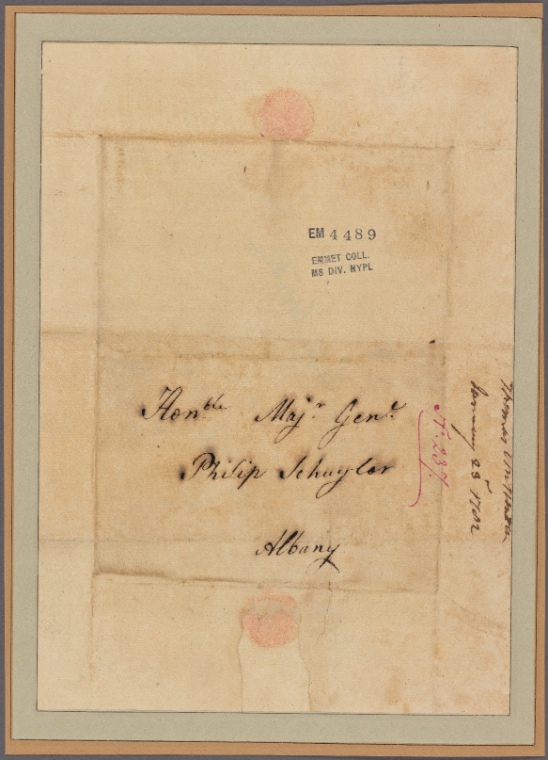 EM 4489
EMMET COLL.
MS DIV. NYPL
Honble Majr Genl
Philip Schuyler
Albany
N. 237.
Thomas
January 23d 1782